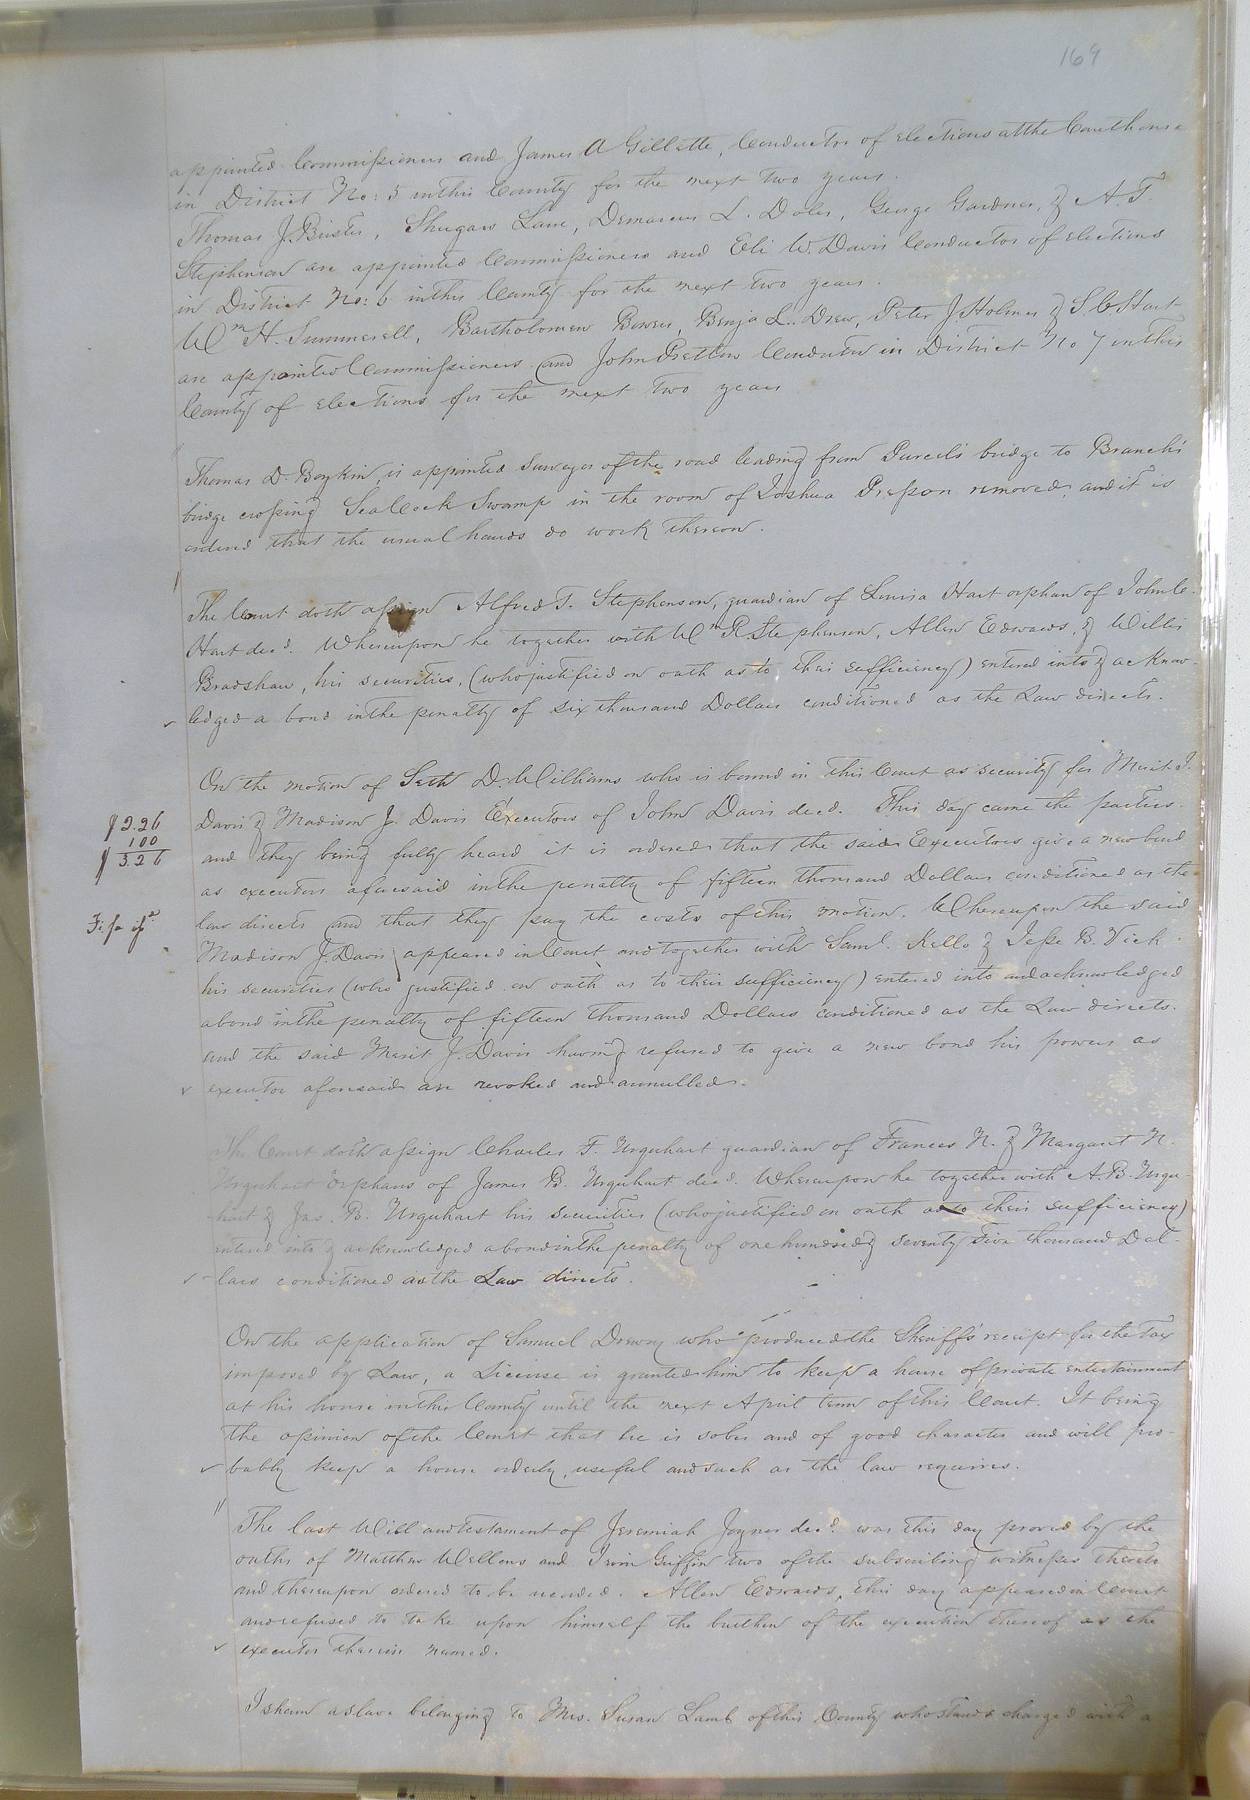 169
appointed Commissioners and James A Gillette, Conductor of elections at the Courthouse
in District No: 5 in this County for the next two years.
Thomas J. Bristor, Shugars Lane, Demarcus L. Doles, George Gardner, & A. T.
Stephenson are appointed Commissioners and Eli W. Davis Conductor of elections
in District No: 6 in this County for the next two years.
Wm H. Summerell, Bartholomew Bowers, Benja L. Drew, Peter J Holmes & S C Hart
are appointed Commissioners and John Pretlow Conductor in District No 7 in this
County of elections for the next two years
Thomas D. Boykin, is appointed Surveyor of the road leading from Purcel's bridge to Branch's
bridge crossing Seacock Swamp in the room of Joshua Presson removed, and it is
ordered that the usual hands do work thereon.
The Court doth assign Alfred T. Stephenson, guardian of Louisa Hart orphan of John C.
Hart decd. Whereupon he together with Wm R. Stephenson, Allen Edwards, & Willis
Bradshaw, his securities, (who justified on oath as to their sufficiency) entered into & acknow-
ledged a bond in the penalty of six thousand Dollars conditioned as the Law directs.
On the motion of Seth D. Williams who is bound in this Court as security for Merit J.
Davis & Madison J. Davis Executors of John Davis decd. This day came the parties
and they being fully heard it is ordered that the said Executors give a new bond
as executors aforesaid in the penalty of fifteen thousand Dollars conditioned as the
law directs and that they pay the costs of this motion. Whereupon the said
Madison J. Davis appeared in Court and together with Saml. Kello & Jesse B. Vick
his securities (who justified on oath as to their sufficiency) entered into and acknowledged
a bond in the penalty of fifteen thousand Dollars conditioned as the Law directs.
and the said Merit J. Davis having refused to give a new bond his powers as
executor aforesaid are revoked and annulled.
$2.26
100
$3.26
Fi fa isd
The Court doth assign Charles F. Urquhart guardian of Frances N. & Margaret N.
Urquhart orphans of James B. Urquhart decd. Whereupon he together with A. B. Urqu-
hart & Jas. B. Urquhart his securities (who justified on oath as to their sufficiency)
entered into & acknowledged a bond in the penalty of one hundred & seventy five thousand Dol-
lars conditioned as the Law directs.
On the application of Samuel Drewry who produced the Sheriff's receipt for the Tax
imposed by Law, a License is granted him to keep a house of private entertainment
at his house in this County until the next April term of this Court. It being
the opinion of the Court that he is sober and of good character and will pro-
bably keep a house orderly, useful and such as the law requires.
The last Will and testament of Jeremiah Joyner decd. was this day proved by the
oaths of Matthew Wellons and Irvin Griffin two of the subscribing witnesses thereto
and thereupon ordered to be recorded. Allen Edwards, this day appeared in Court
and refused to take upon himself the burthen of the execution thereof as the
executor therein named.
Isham a slave belonging to Mrs. Susan Lamb of this County who stands charged with a